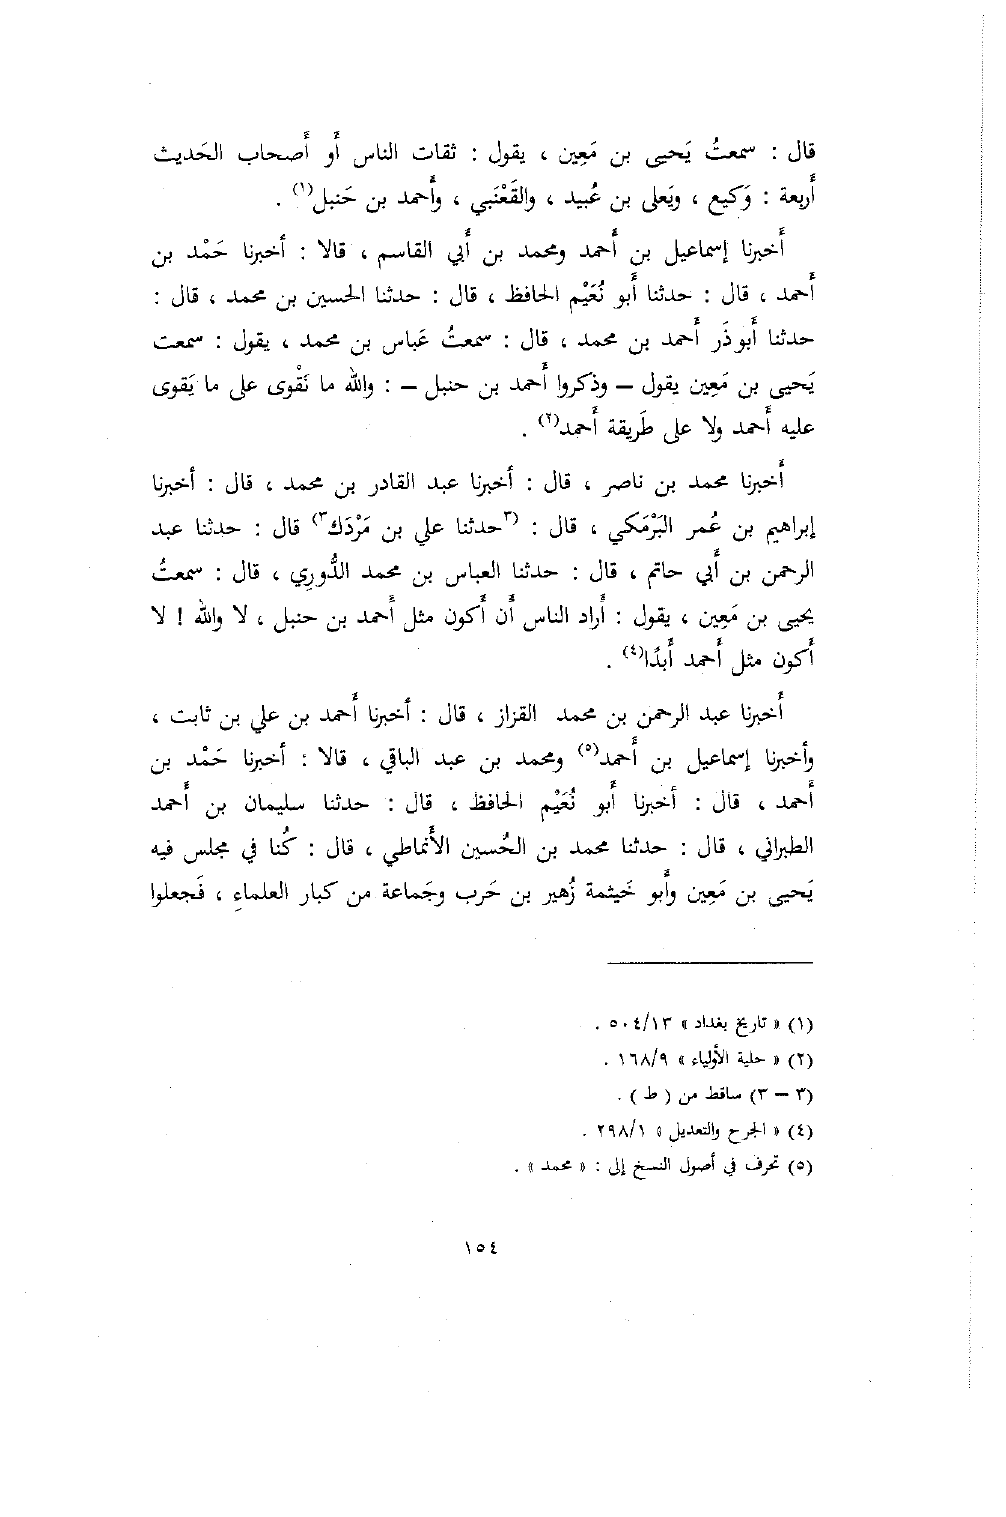 قال : سمعتُ يَحيى بن مَعِين ، يقول : ثقات الناس أَو أَصحاب الحَديث
أَربعة : وَكيع ، ويَعلى بن عُبيد ، والقَعْنَبي ، وأَحمد بن حَنبل(١) .
أَخبرنا إسماعيل بن أَحمد ومحمد بن أَبي القاسم ، قالا : أخبرنا حَمْد بن
أَحمد ، قال : حدثنا أَبو نُعَيْم الحافظ ، قال : حدثنا الحسين بن محمد ، قال :
حدثنا أَبوذَر أَحمد بن محمد ، قال : سمعتُ عَباس بن محمد ، يقول : سمعت
يَحيى بن مَعِين يقول – وذكروا أَحمد بن حنبل – : والله ما نَقْوى على ما يَقوى
عليه أَحمد ولا على طَريقة أَحمد(٢) .
أَخبرنا محمد بن ناصر ، قال : أخبرنا عبد القادر بن محمد ، قال : أخبرنا
إبراهيم بن عُمر البَرْمَكي ، قال : (٣حدثنا علي بن مَرْدَك٣) قال : حدثنا عبد
الرحمن بن أَبي حاتم ، قال : حدثنا العباس بن محمد الدُّورِي ، قال : سمعتُ
يحيى بن مَعِين ، يقول : أَراد الناس أَن أَكون مثل أَحمد بن حنبل ، لا والله ! لا
أَكون مثل أَحمد أَبدًا(٤) .
أَخبرنا عبد الرحمن بن محمد القزاز ، قال : أخبرنا أَحمد بن علي بن ثابت ،
وأخبرنا إسماعيل بن أَحمد(٥) ومحمد بن عبد الباقي ، قالا : أخبرنا حَمْد بن
أَحمد ، قال : أخبرنا أَبو نُعَيْم الحافظ ، قال : حدثنا سليمان بن أَحمد
الطبراني ، قال : حدثنا محمد بن الحُسين الأَنماطي ، قال : كُنا في مجلس فيه
يَحيى بن مَعِين وأَبو خَيثمة زُهير بن حَرب وجَماعة من كبار العلماءِ ، فَجعلوا
(١) « تاريخ بغداد » ٥٠٤/١٣ .
(٢) « حلية الأولياء » ١٦٨/٩ .
(٣ – ٣) ساقط من ( ط ) .
(٤) « الجرح والتعديل » ٢٩٨/١ .
(٥) تحرف في أصول النسخ إلى : « محمد » .
١٥٤